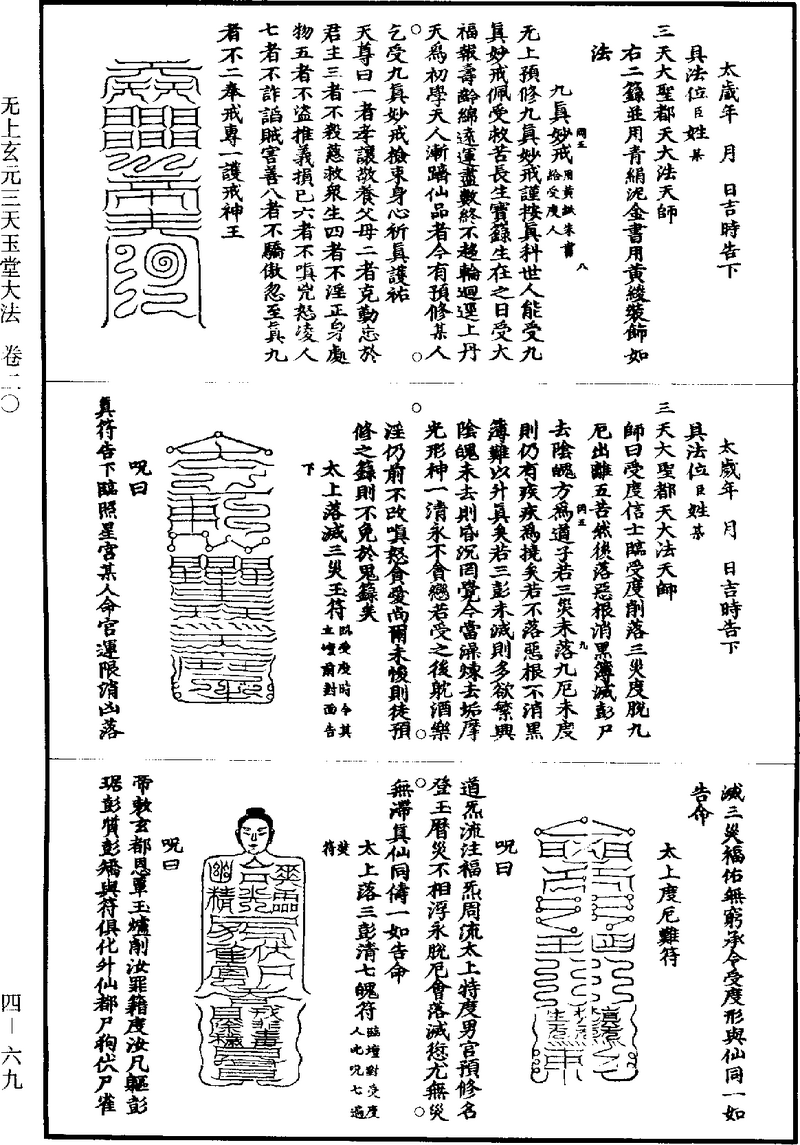 太歲年　月　日吉時告下
具法位臣姓某
三天大聖都天大法天師
右二籙並用青絹泥金書用黃綾裝飾如
法
九真妙戒用黃紙朱書給受度人
无上預修九真妙戒謹按真科世人能受九
真妙戒佩受救苦長生寶籙生在之日受大
福報壽齡綿遠運盡數終不趍輪迴逕上丹
天為初學天人漸躋仙品者今有預修某人
乞受九真妙戒檢束身心祈真護祐
天尊曰一者孝讓敬養父母二者克勤忠於
君主三者不殺慈救眾生四者不淫正身處
物五者不盜推義損己六者不嗔兇怒凌人
七者不詐諂賊害善八者不驕傲忽至真九
者不二奉戒專一護戒神王
太歲年　月　日吉時告下
具法位臣姓某
三天大聖都天大法天師
師曰受度信士臨受度削落三災度脫九
厄出離五苦然後落惡根消黑簿滅彭尸
去陰魄方為道子若三災未落九厄未度
則仍有疾疾為撓矣若不落惡根不消黑
簿難以升真矣若三彭未滅則多欲繁興
陰魄未去則昏沉罔覺今當澡煉去垢摩
光形神一清永不貪戀若受之後躭酒樂
淫仍前不改嗔怒貪愛尚爾未悛則徒預
修之籙則不免於鬼籙矣
太上落滅三災玉符臨受度時令其立壇前對面告下
呪曰
真符告下臨照星宮某人命官運限消凶落
滅三災福佑無窮承今受度形與仙同一如
告命
太上度厄難符
呪曰
道炁流注福炁周流太上特度男官預修名
登玉曆災不相浮永脫厄會落滅愆尤無災
無滯真仙同儔一如告命
太上落三彭清七魄符臨壇對受度人叱呪七遍焚符
呪曰
帝敕玄都恩覃玉爐削汝罪籍度汝凡軀彭
琚彭質彭矯與符俱化升仙都尸狗伏尸雀
无上玄元三天玉堂大法　卷二〇
四－六九